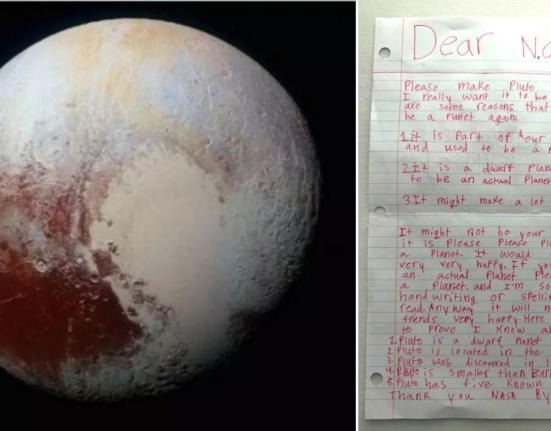 Dear N.
Please make Pluto
I really want it to be
are some reasons that
be a Planet again
1. it is Part of our
and used to be a
2. It is a dwarf Plan
to be an actual Planet
3. It might make a lot
It might not be your
it is Please Please Pl
a Planet. It would
very very happy. If yo
an actual Planet Ple
a Planet. and I'm so
hand writing or spellin
read. Any way it will m
friends very happy. Here
to prove I know a
1. Pluto is a dwarf Planet
2. Pluto is located in the
3. Pluto was discovered in 1
4. Pluto is smaller than Ear
5. Pluto has five known
Thank you NASA By